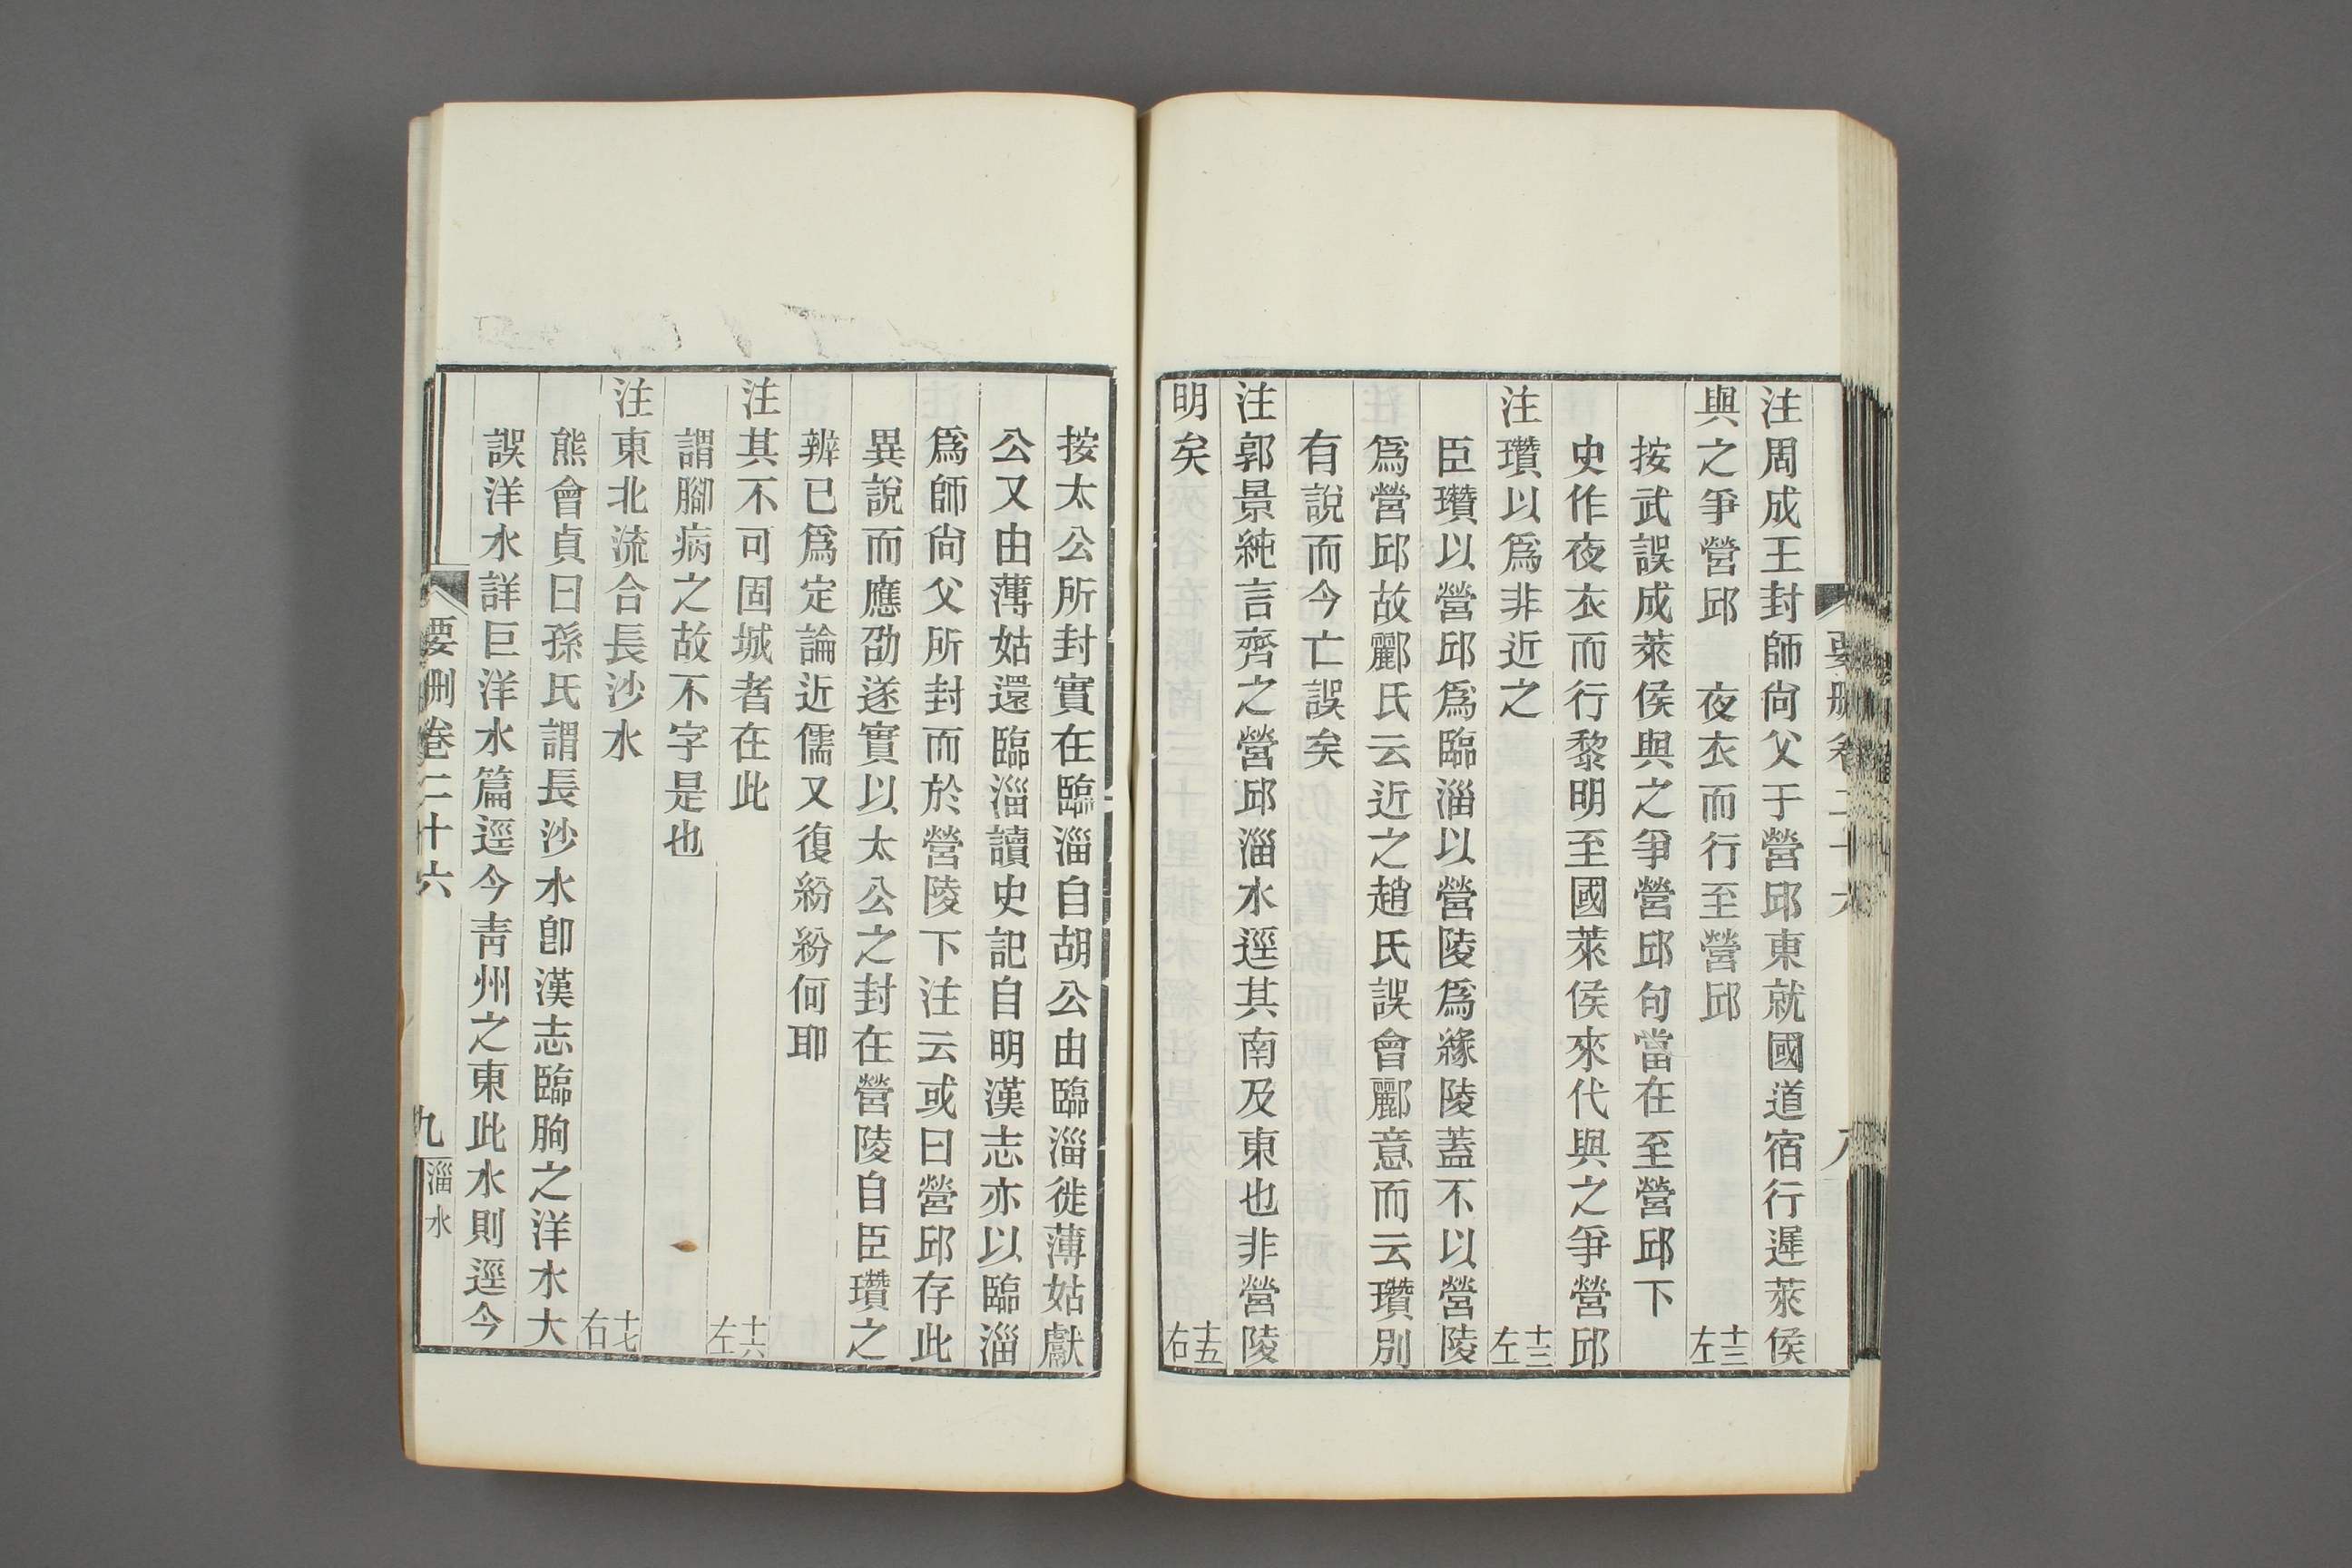 注周成王封師尙父于營邱東就國道宿行遲萊侯
與之爭營邱　夜衣而行至營邱　十三左
按武誤成萊侯與之爭營邱句當在至營邱下
史作夜衣而行黎明至國萊侯來代與之爭營邱
注瓚以爲非近之　十三左
臣瓚以營邱爲臨淄以營陵爲緣陵蓋不以營陵
爲營邱故酈氏云近之趙氏誤會酈意而云瓚別
有說而今亡誤矣
注郭景純言齊之營邱淄水逕其南及東也非營陵
明矣　十五右
按太公所封實在臨淄自胡公由臨淄徙薄姑獻
公又由薄姑還臨淄讀史記自明漢志亦以臨淄
爲師尙父所封而於營陵下注云或曰營邱存此
異說而應劭遂實以太公之封在營陵自臣瓚之
辨已爲定論近儒又復紛紛何耶
注其不可固城者在此　十六左
謂腳病之故不字是也
注東北流合長沙水　十七右
熊會貞曰孫氏謂長沙水卽漢志臨朐之洋水大
誤洋水詳巨洋水篇逕今靑州之東此水則逕今
要刪卷二十六　九　淄水